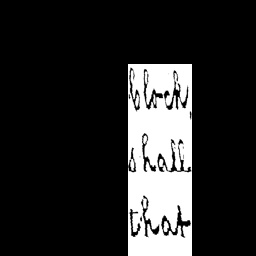 block,
shall
that